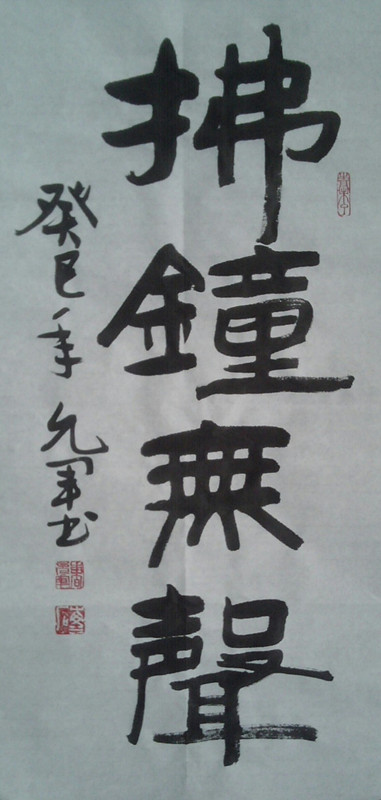 拂鐘無聲
癸巳年 允军书